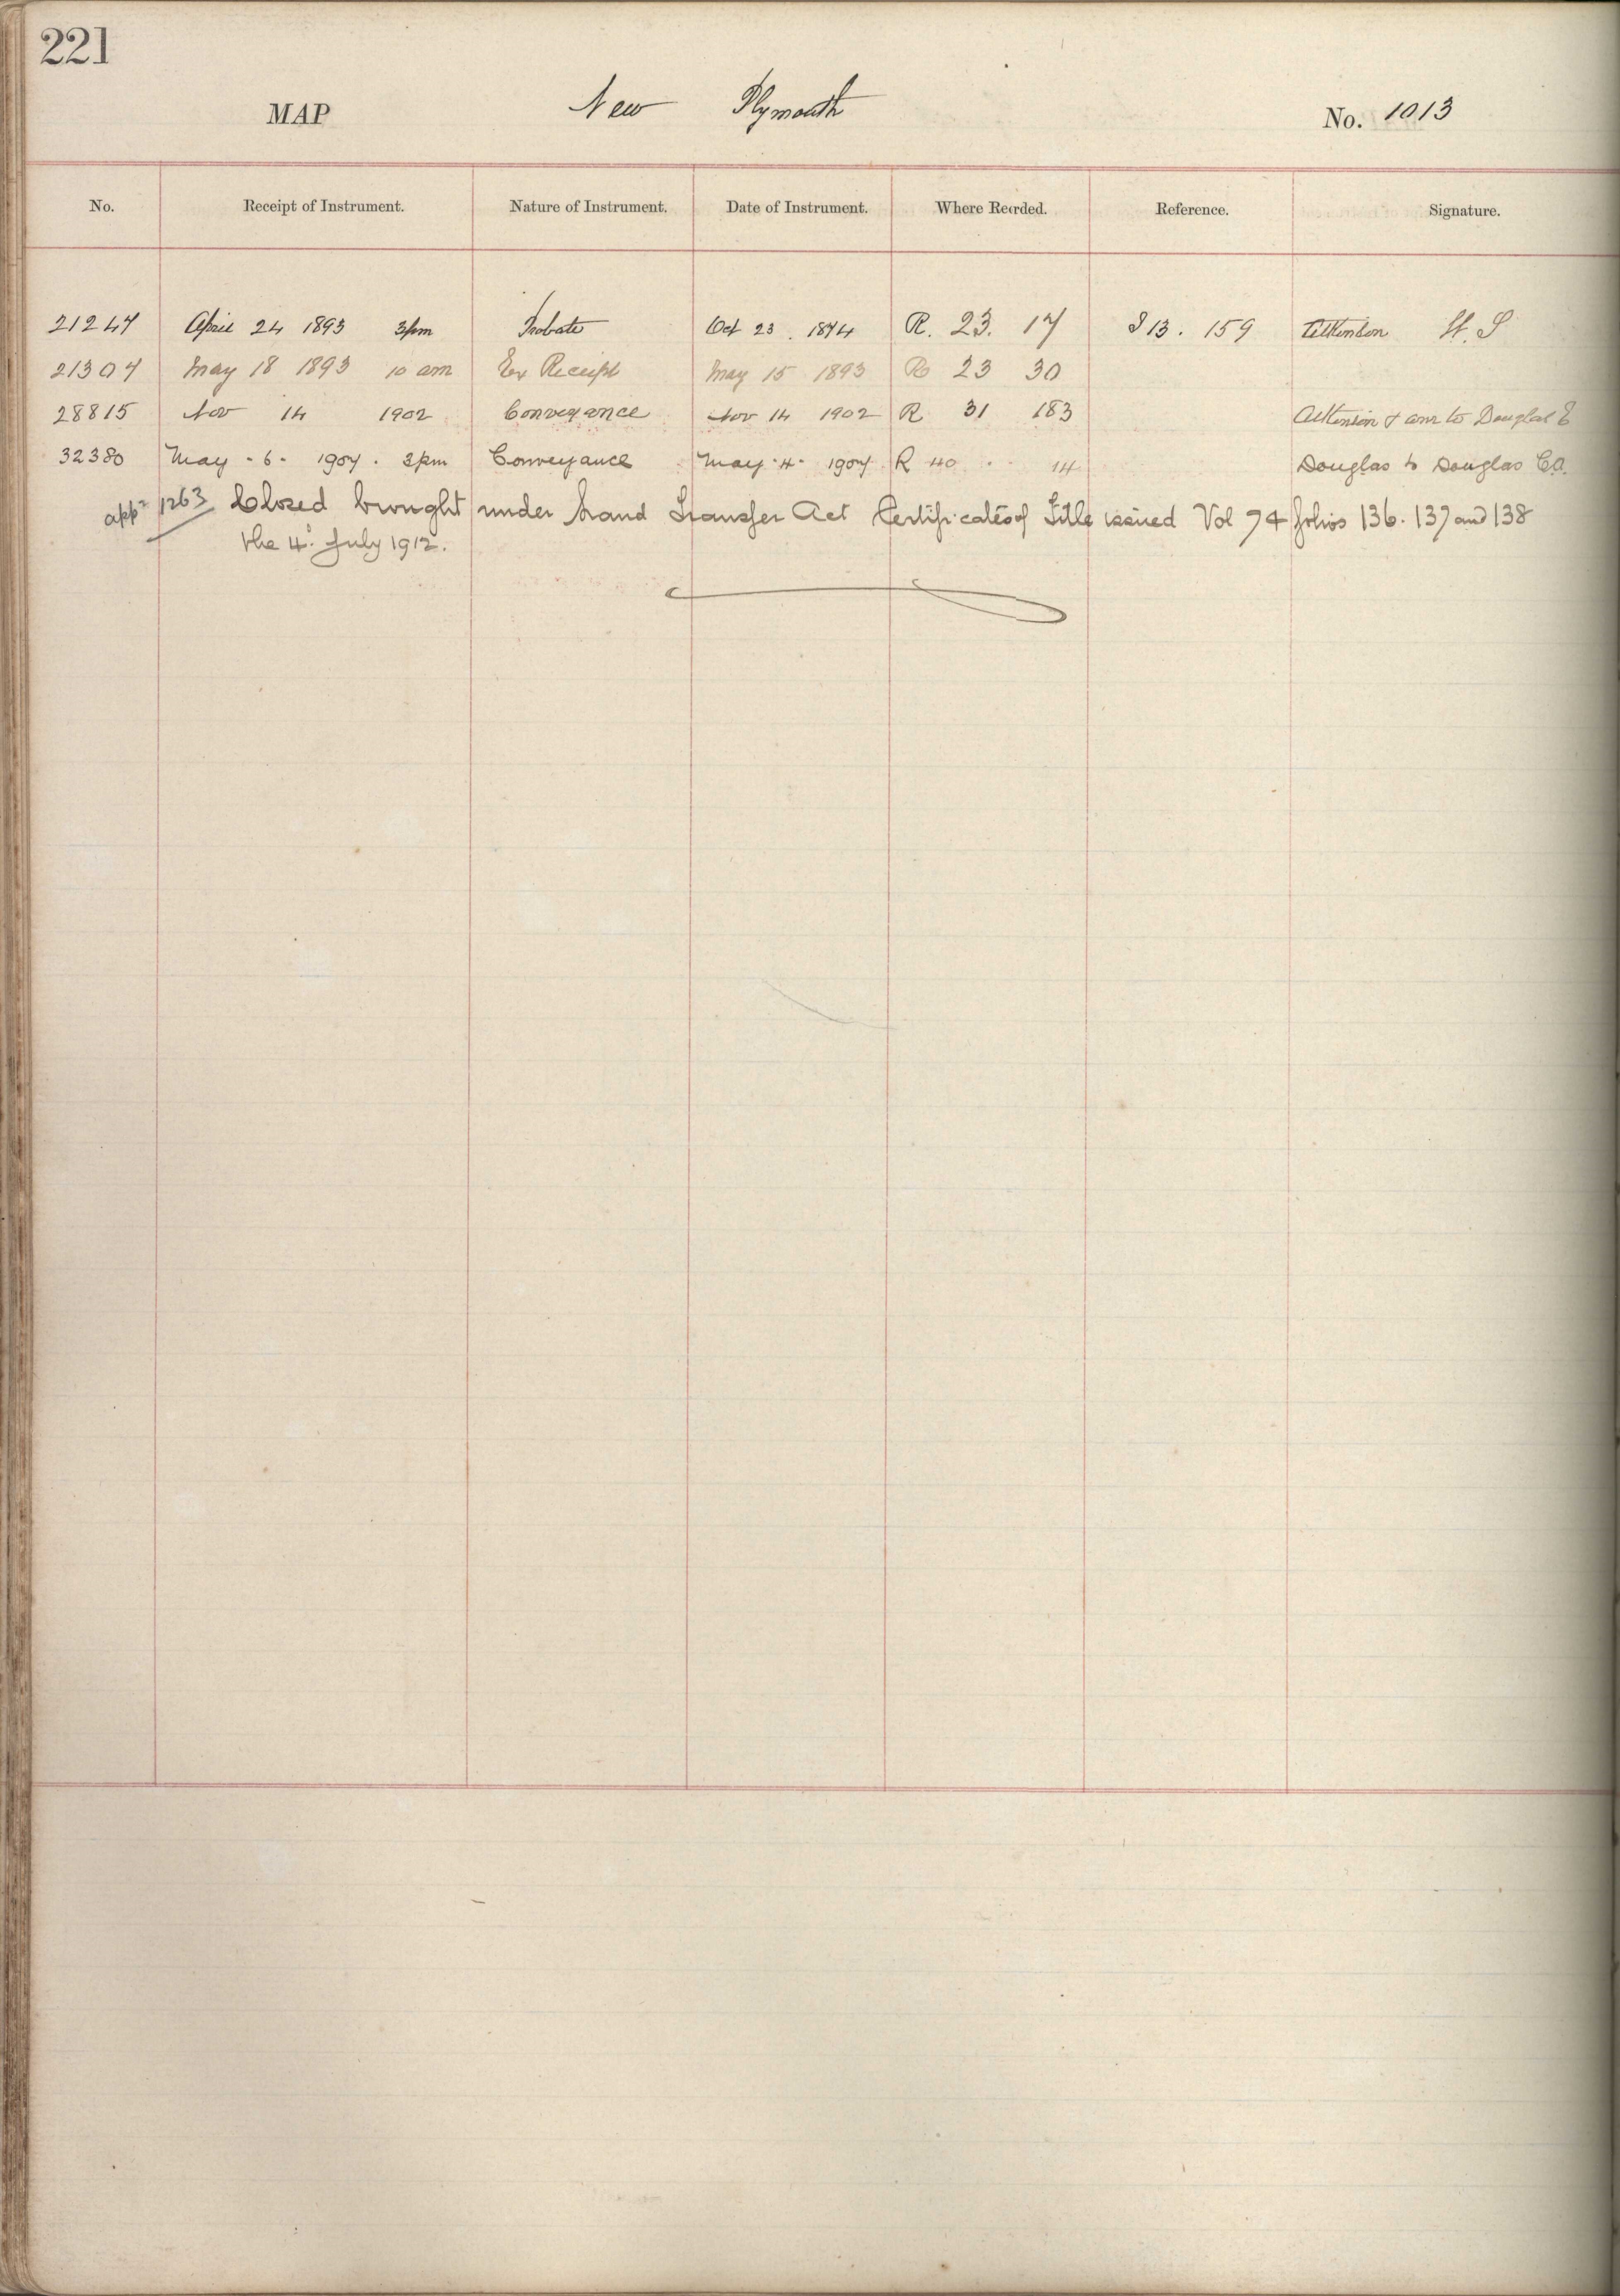 221
MAP New Plymouth No. 1013
No. Receipt of Instrument. Nature of Instrument. Date of Instrument. Where Recrded. Reference. Signature.
21247 April 24 1893 3pm Probate Oct 23. 1874 R. 23. 17 I 13. 159 Atkinson H. S
21307 May 18 1893 10 am Ex Receipt May 15 1893 R 23 30
28815 Nov 14 1902 Conveyance Nov 14 1902 R 31 183 Atkinson & anr to Douglas E
32380 May - 6 - 1907. 3pm Conveyance May - 4 - 1907. R 40 14 Douglas to Douglas
appn 1263 Closed brought under Land Transfer Act Certificates of Title issued Vol 74 folios 136. 137 and 138
the 4th July 1912.